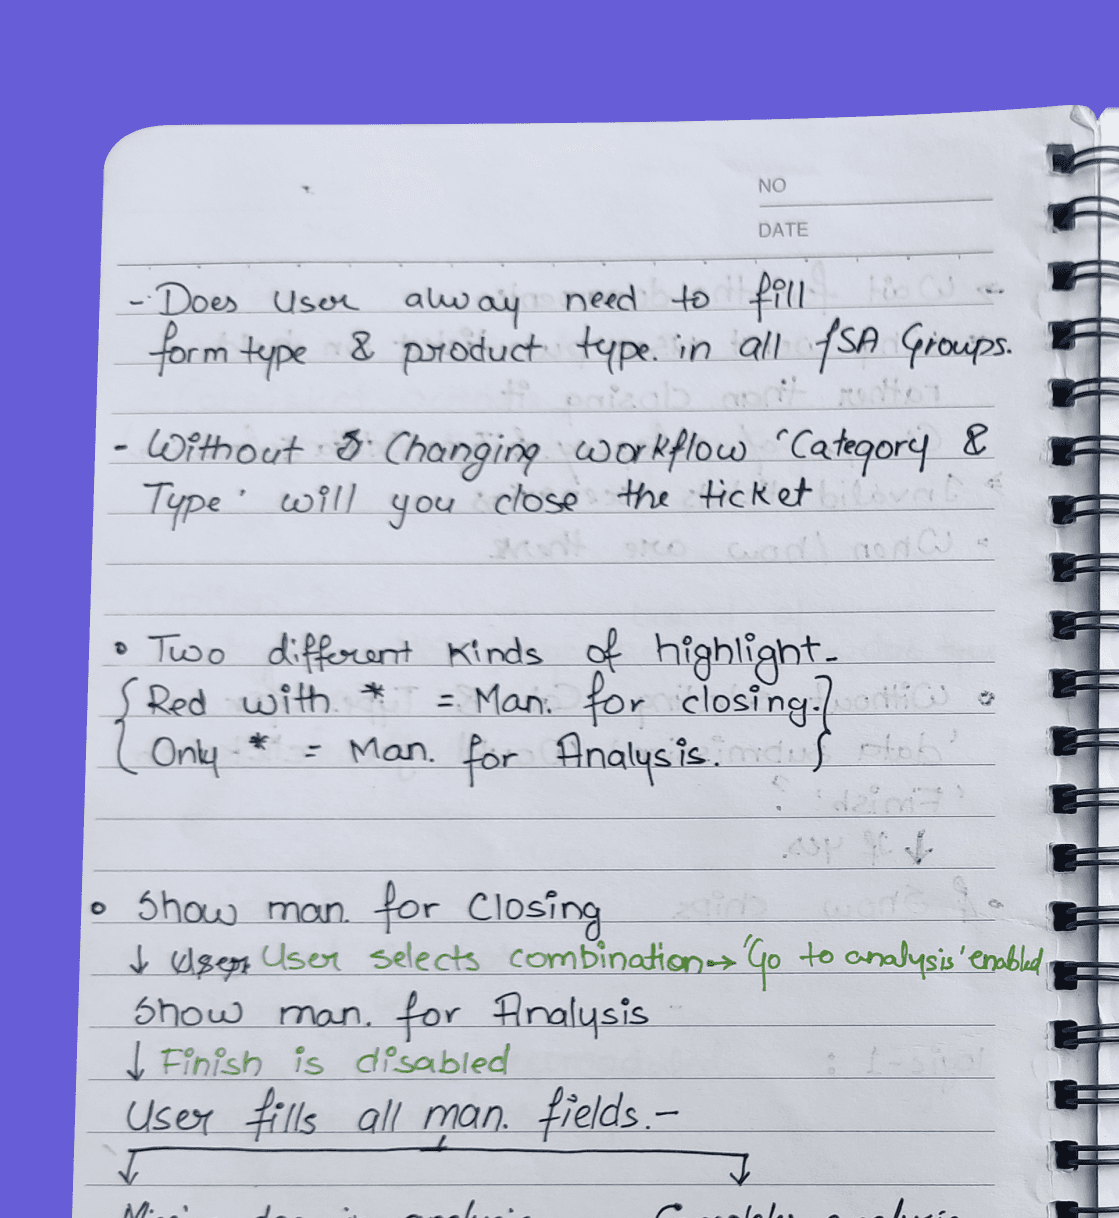 NO
DATE
- Does User alway need to fill
form type & product type. in all fSA Groups.
- Without & Changing workflow 'Category &
Type' will you close the ticket
Two different kinds of highlight-
{ Red with * = Man. for closing. }
{ Only * = Man. for Analysis. }
Show man. for Closing
↓ User User selects combination → 'Go to analysis' enabled
Show man. for Analysis
↓ Finish is disabled
User fills all man. fields. -